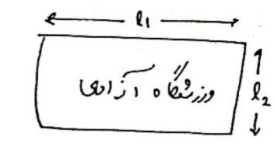 l₁
ورزشگاه آزادی
l₂